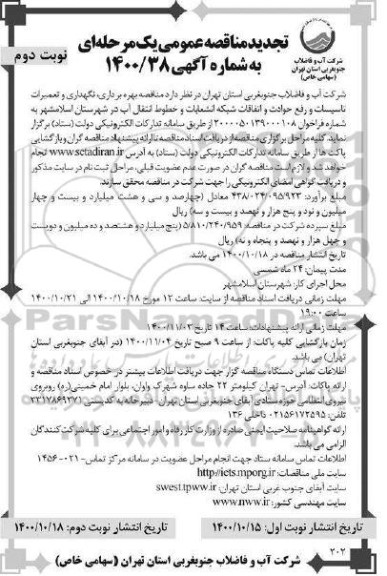 تجدید مناقصه عمومی یک مرحله‌ای
به شماره آگهی ۱۴۰۰/۳۸
نوبت دوم
شرکت آب و فاضلاب
جنوبغربی استان تهران
(سهامی خاص)
شرکت آب و فاضلاب جنوبغربی استان تهران در نظر دارد مناقصه بهره برداری، نگهداری و تعمیرات
تاسیسات و رفع حوادث و اتفاقات شبکه انشعابات و خطوط انتقال آب در شهرستان اسلامشهر به
شماره فراخوان ۲۰۰۰۰۵۰۱۳۹۰۰۰۱۰۸ از طریق سامانه تدارکات الکترونیکی دولت (ستاد) برگزار
نماید. کلیه مراحل برگزاری مناقصه از دریافت اسناد مناقصه تا ارائه پیشنهاد مناقصه گران و بازگشایی
پاکت ها از طریق سامانه تدارکات الکترونیکی دولت (ستاد) به آدرس www.setadiran.ir انجام
خواهد شد و لازم است مناقصه گران در صورت عدم عضویت قبلی، مراحل ثبت نام در سایت مذکور
و دریافت گواهی امضای الکترونیکی را جهت شرکت در مناقصه محقق سازند.
مبلغ برآورد: ۴۳۸/۰۲۴/۰۹۵/۹۲۳ معادل (چهارصد و سی و هشت میلیارد و بیست و چهار
میلیون و نود و پنج هزار و نهصد و بیست و سه) ریال
مبلغ سپرده شرکت در مناقصه: ۵/۸۱۰/۲۴۰/۹۵۹ (پنج میلیارد و هشتصد و ده میلیون و دویست
و چهل هزار و نهصد و پنجاه و نه) ریال
تاریخ انتشار مناقصه در ۱۴۰۰/۱۰/۱۸ می باشد.
مدت پیمان: ۲۴ ماه شمسی
محل اجرای کار: شهرستان اسلامشهر
مهلت زمانی دریافت اسناد مناقصه از سایت: ساعت ۱۲ مورخ ۱۴۰۰/۱۰/۱۸ الی ۱۴۰۰/۱۰/۲۱
ساعت ۱۹:۰۰
مهلت زمانی ارائه پیشنهادات: ساعت ۱۴ تاریخ ۱۴۰۰/۱۱/۰۳
زمان بازگشایی کلیه پاکات: از ساعت ۹ صبح تاریخ ۱۴۰۰/۱۱/۰۴ (در آبفای جنوبغربی استان
تهران) می باشد
اطلاعات تماس دستگاه مناقصه گزار جهت دریافت اطلاعات بیشتر در خصوص اسناد مناقصه و
ارائه پاکات: آدرس- تهران کیلومتر ۲۲ جاده ساوه شهرک واوان، بلوار امام خمینی(ره) روبروی
نیروی انتظامی حوزه ستادی آبفای جنوبغربی استان تهران- دبیرخانه به کدپستی: ۳۳۱۷۸۶۹۳۷۱
تلفن: ۰۲۱۵۶۱۷۲۵۹۵ داخلی ۱۳۶
ارائه گواهینامه صلاحیت ایمنی صادره از وزارت کار رفاه و امور اجتماعی برای کلیه شرکت کنندگان
الزامی می باشد.
اطلاعات تماس سامانه ستاد جهت انجام مراحل عضویت در سامانه مرکز تماس- ۰۲۱-۱۴۵۶
سایت ملی مناقصات: http://iets.mporg.ir
سایت آبفای جنوب غربی استان تهران: swest.tpww.ir
سایت مهندسی کشور: www.nww.ir
تاریخ انتشار نوبت اول: ۱۴۰۰/۱۰/۱۵
تاریخ انتشار نوبت دوم: ۱۴۰۰/۱۰/۱۸
۲۰۲
شرکت آب و فاضلاب جنوبغربی استان تهران (سهامی خاص)